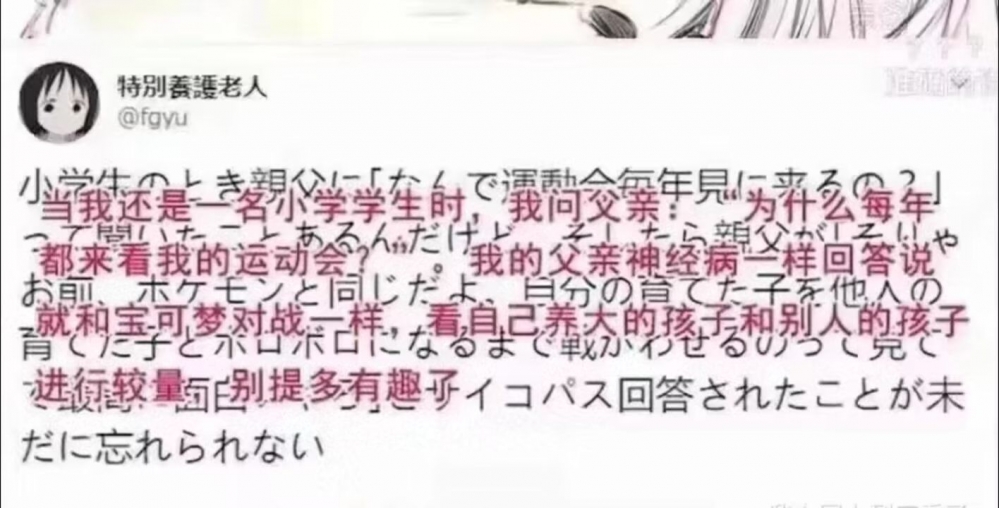 特別養護老人
@fgyu
小学生のとき親父に「なんで運動会毎年見に来るの？」
当我还是一名小学学生时，我问父亲：“为什么每年
って聞いたことあるんだけど、そしたら親父が「そりゃ
都来看我的运动会？”。我的父亲神经病一样回答说
お前、ポケモンと同じだよ、自分の育てた子を他人の
就和宝可梦对战一样，看自己养大的孩子和别人的孩子
育てた子とボロボロになるまで戦かわせるのって見て
进行较量 别提多有趣了
サイコパス回答されたことが未
だに忘れられない